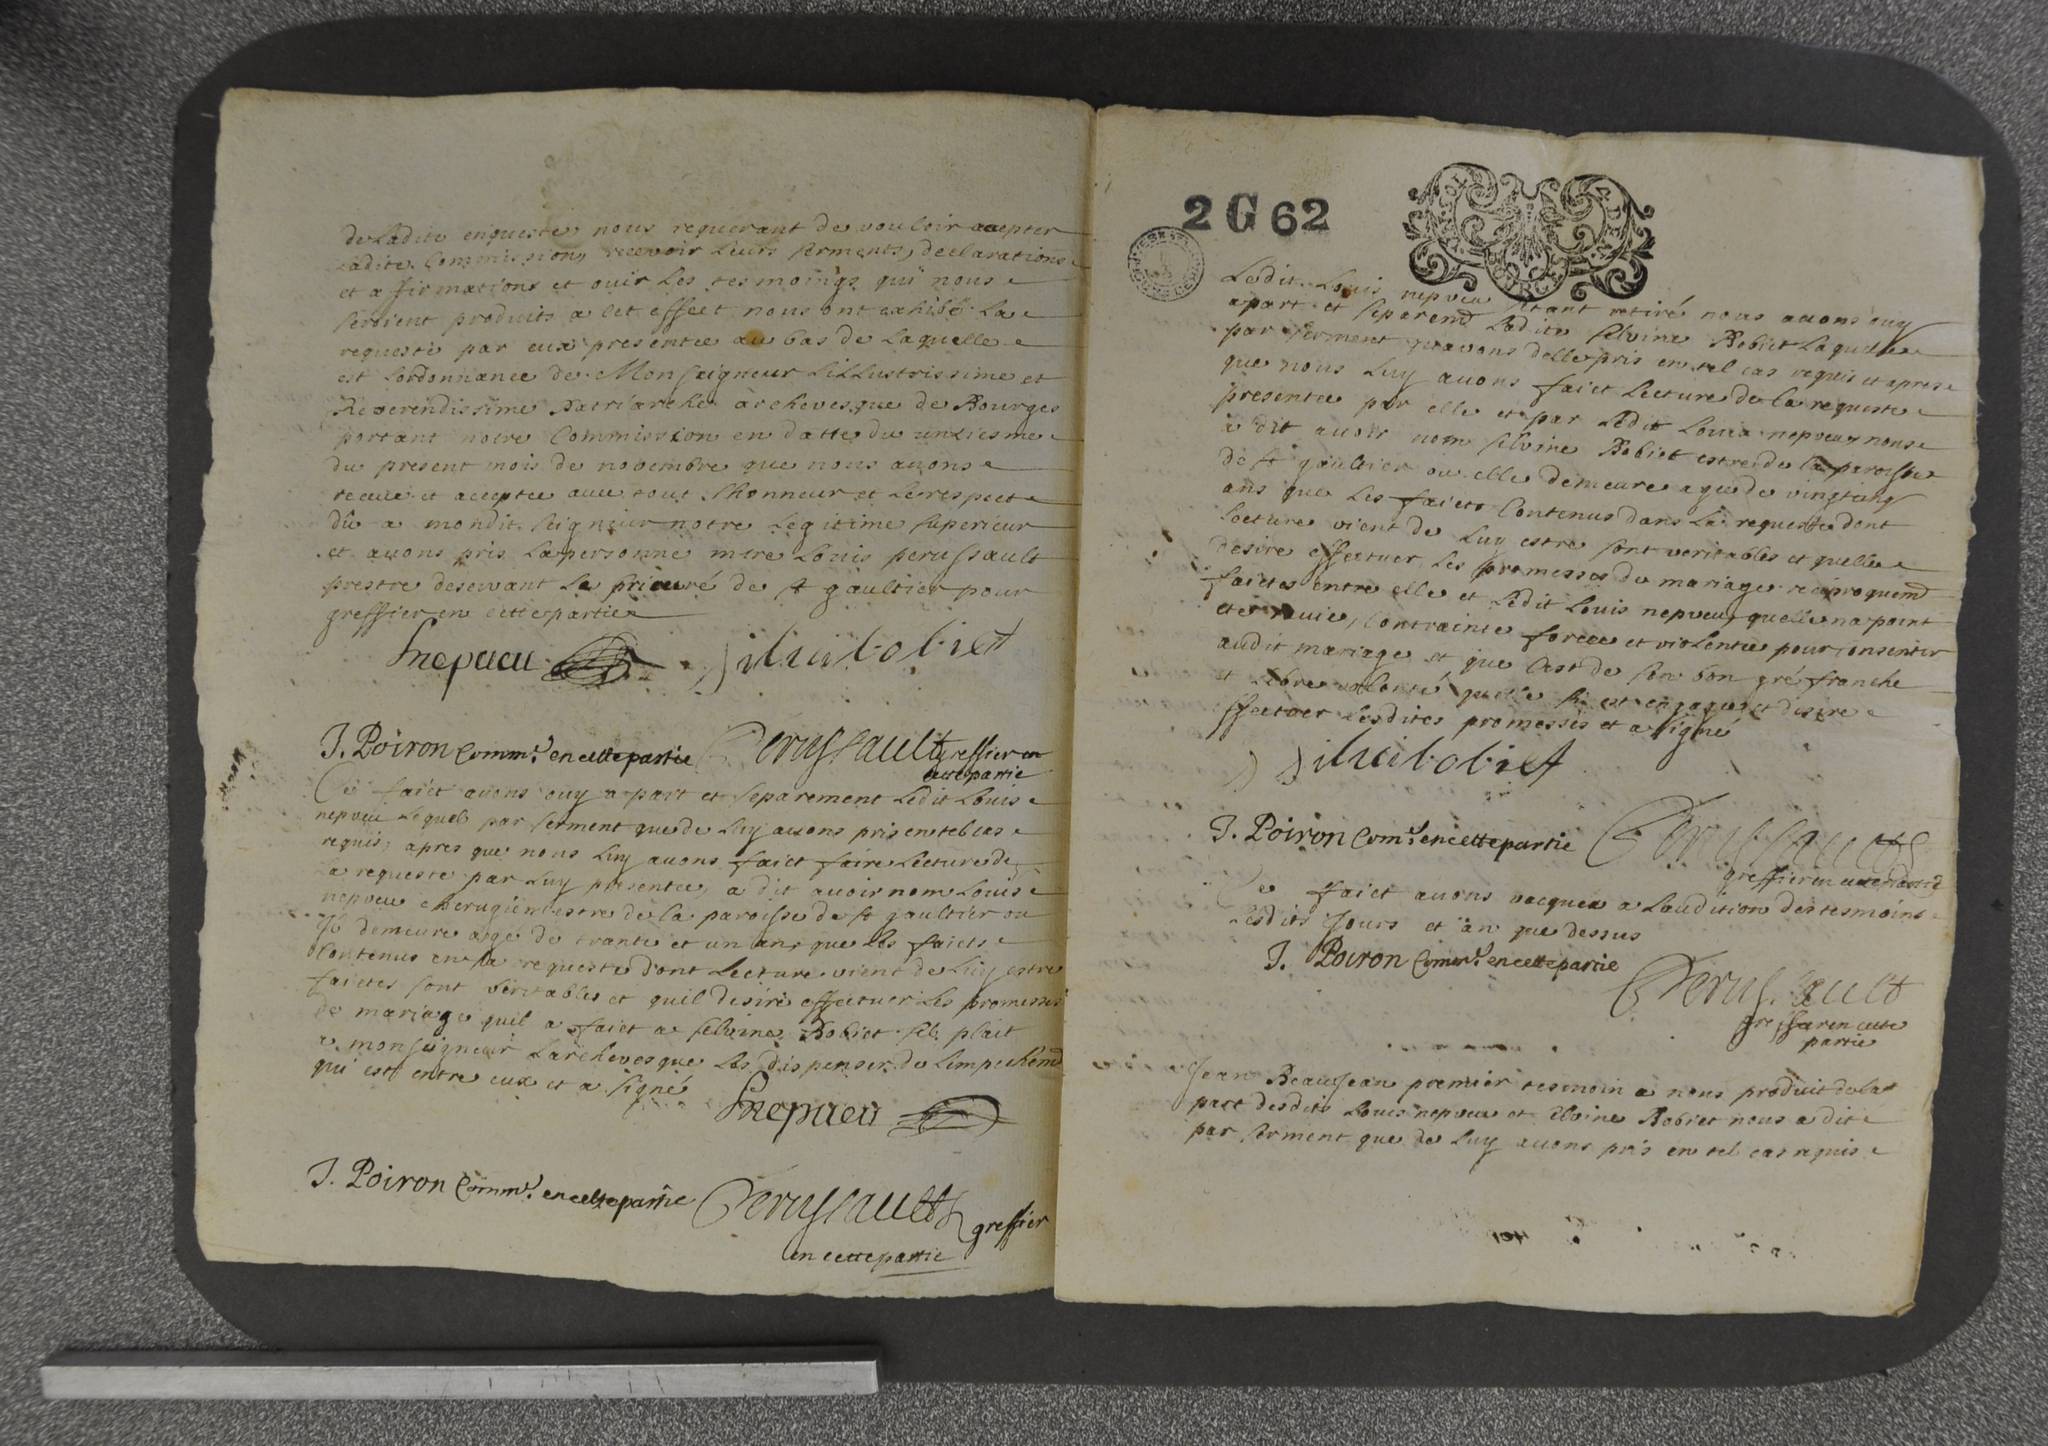 de Ladite enqueste nous requerant de vouloir accepter
Ladite Commission, recevoir Leurs serments, declarations
et affirmations et ouir Les tesmoings qui nous
seroient produits a cet effect nous ont exhibé La
requeste par eux presentee au bas de Laquelle
est Lordonnance de Monseigneur LiLLustrissime et
Reverendissime Patriarche archevesque de Bourges
portant notre Commission en datte du unziesme
du present mois de novembre que nous avons
receue et acceptee avec tout Lhonneur et Le respect
dû a mondit seigneur notre Legitime superieur
et avons pris La personne mtre Louis perussault
prestre deservant Le prieuré de st gaultier pour
greffier en cette partie
Lnepueu Silvinbobiet
J. Poiron Commre. en cette partie Perussault greffier en
cette partie
Ce faict avons ouy a part et separement Ledit Louis
nepveu Lequel par serment que de Luy avons pris en tel cas
requis, apres que nous Luy avons faict faire Lecture de
La requeste par Luy presentee, a dit avoir nom Louis
nepveu cherugien estre de la paroisse de st gaultier ou
il demeure agé de trante et un ans que Les faicts
Contenus en la requeste dont Lecture vient de Luy estre
faictes sont veritables et quil desire effectuer Les promesses
de mariage quil a faict a silvine Bobiet sil plait
a monseigneur Larchevesque Les dispenser de Lempechemt
qui est entre eux et a signé
Lnepueu
J. Poiron Commre. en cette partie Perussault greffier
en cette partie
2 G 62
Ledit Louis nepveu stant retiré nous avons ouy
apart et separemt Ladite silvine Bobiet Laquelle
par serment qavons delle pris en tel cas requis et apres
que nous Luy avons faict Lecture de la requeste
presentee par elle et par Ledit Louis nepveu nous
a dit avoir nom silvine Bobiet estre de la paroisse
de st gaultier ou elle demeure agee de vingt cinq
ans que Les faicts Contenus dans La requeste dont
Lecture vient de Luy estre sont veritables et quelle
desire effectuer Les promesses de mariage reciproquemt
faictes entre elle et Ledit Louis nepveu, quelle na point
este ravie, Contrainte forcee et violentee pour consentir
audit mariage et que Cest de son bon gré franche
et Libre volonté quelle si est engagee et desire
effectuer Lesdites promesses et a signé
Silvinbobiet
J. Poiron Comre. en cette partie Perussault
greffier en cette partie
Ce faict avons vacquea a Laudition des tesmoins
Lesdits Jours et an que dessus
J. Poiron Commre. en cette partie
Perussault
greffier en cette
partie
Jean BeauJean premier tesmoin a nous produit de la
part desdits Louis nepveu et silvine Bobiet nous a dit
par serment que de Luy avons pris en tel cas requis